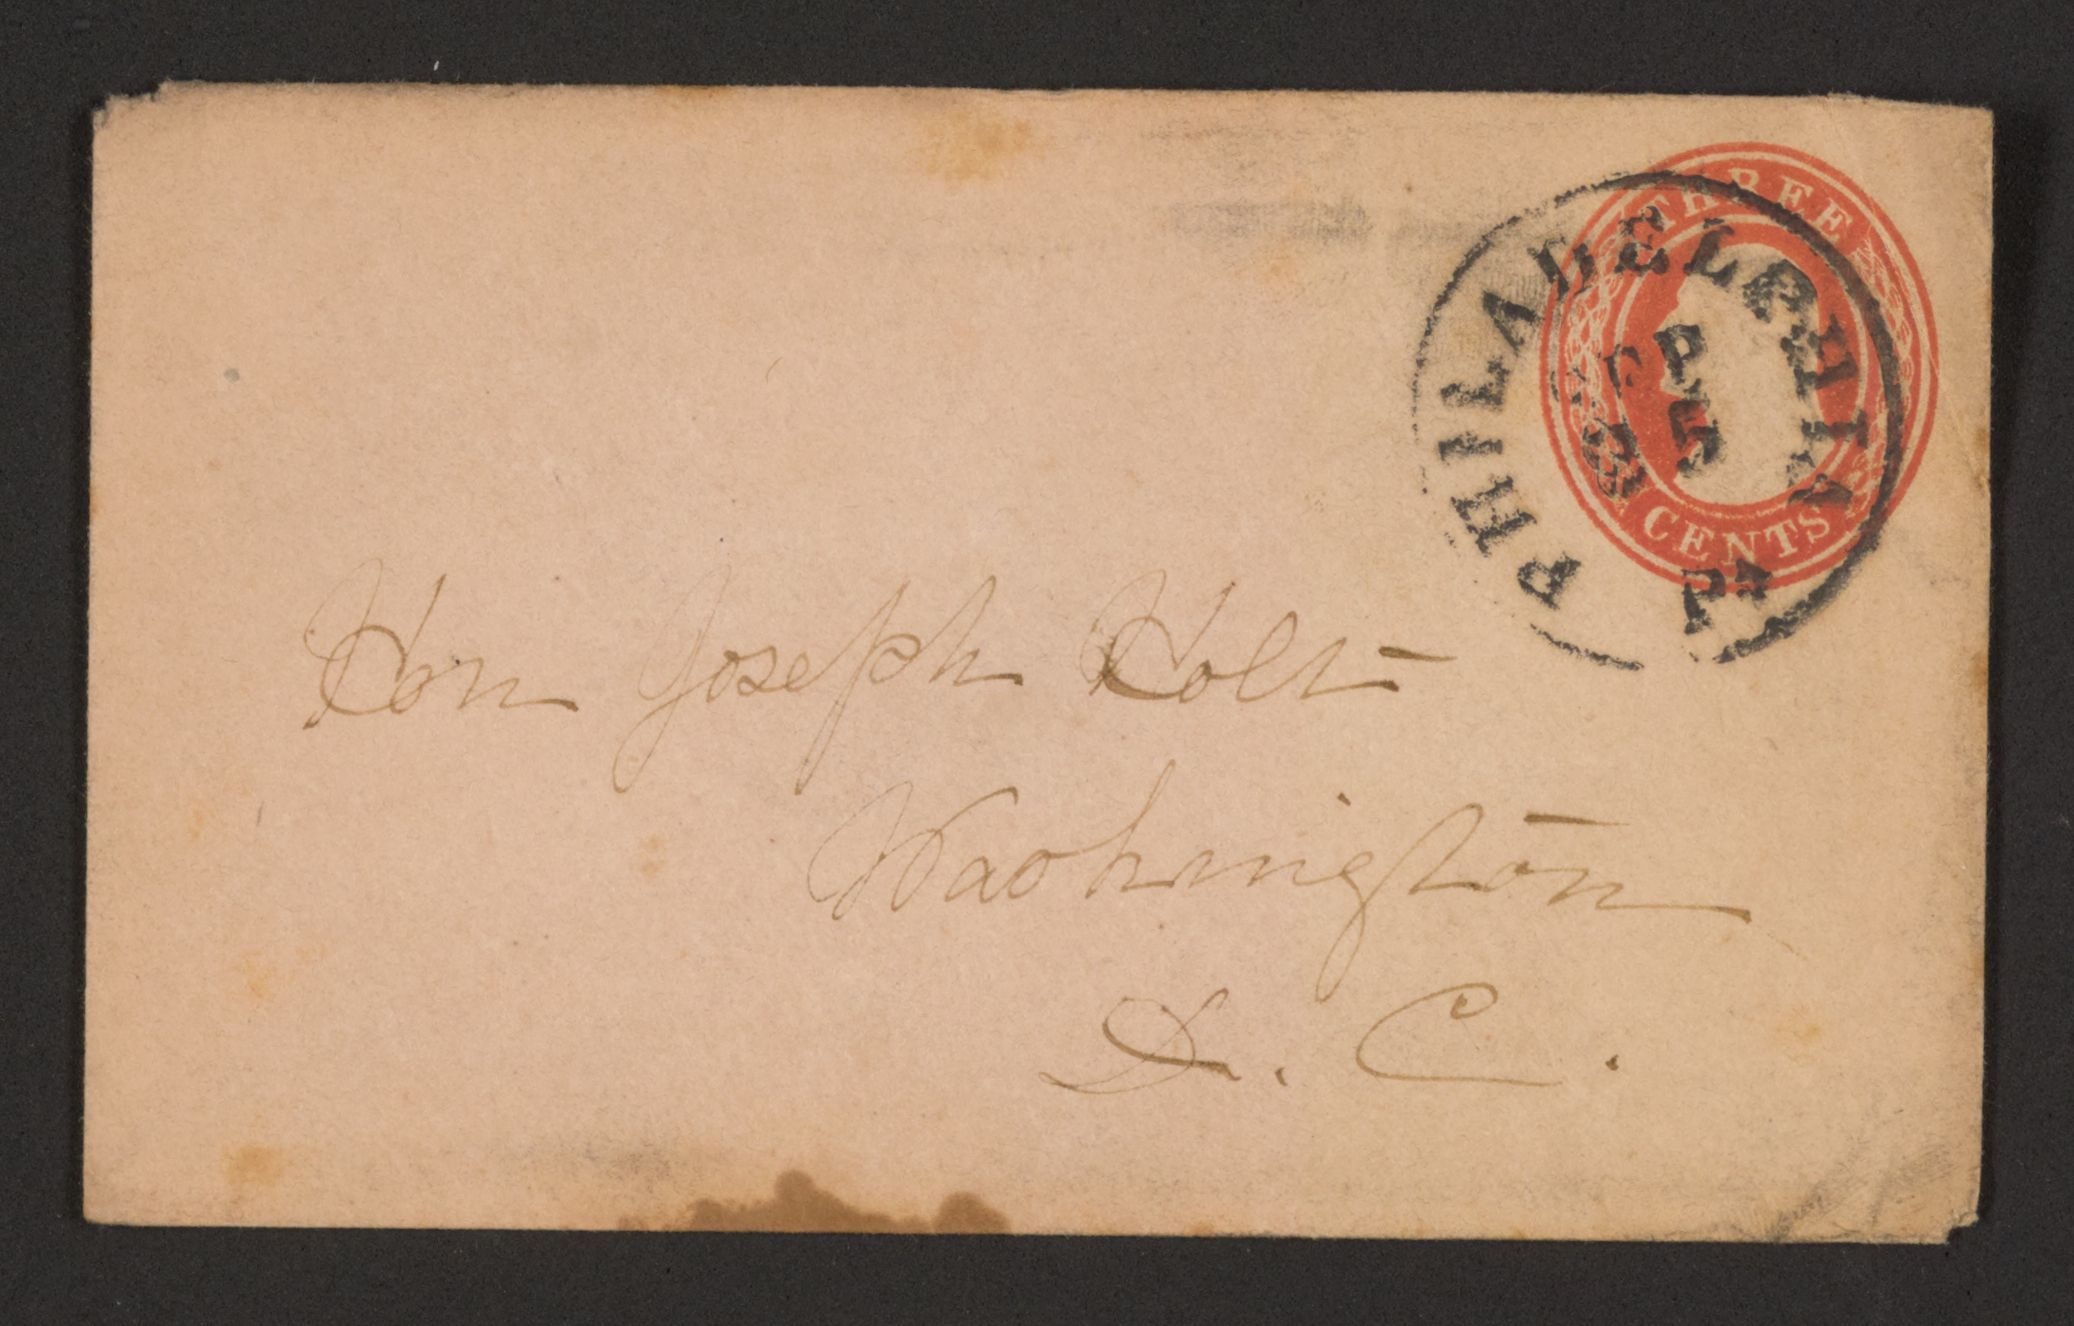 THREE
CENTS
PHILADELPHIA
5
Pa
Hon Joseph Holt
Washington
D. C.